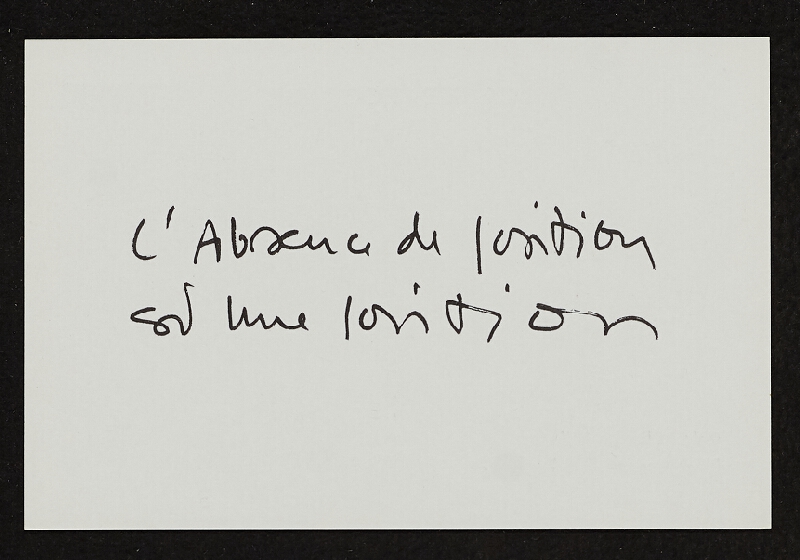 L'Absence de position
est une position